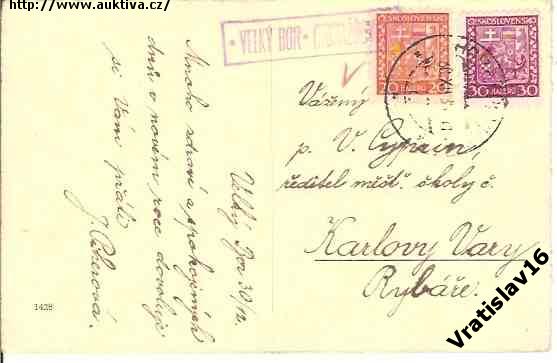 http://www.auktiva.cz/
VELKÝ BOR
ČESKOSLOVENSKO
20 HALÉŘŮ 20
ČESKOSLOVENSKO
30 HALÉŘŮ 30
Mnoho zdraví a spokojených
dnů v novém roce dovoluje
si Vám přáti
Velký Bor 30/12.
Vážený pán
p. V. Cyprin,
ředitel měšť. školy č.
Karlovy Vary
Rybáře.
1428
Vratislav16